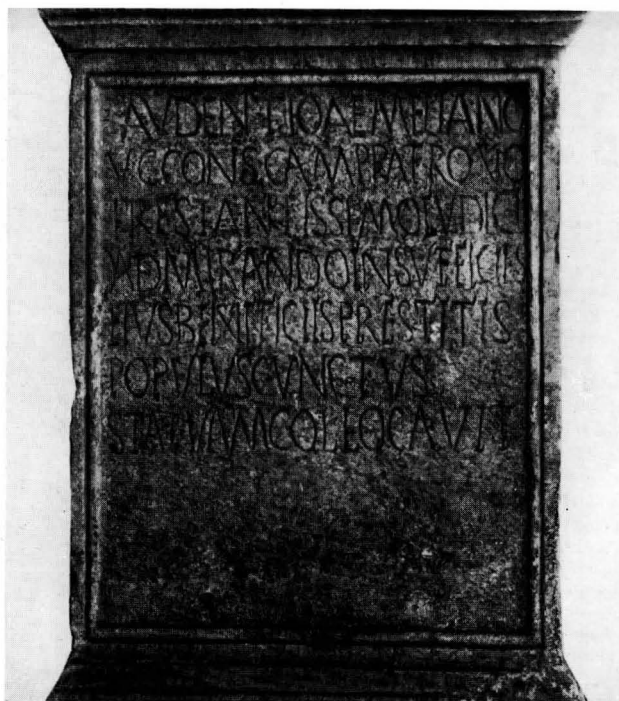 AVDENTIO AEMELIANO
V C CONS CAMP PATRONO
PRESTANTISSIMO IVDICI
ADMIRANDO IN SVFFICIIS
EIVS BENEFICIIS PRESTITIS
POPVLVS CVNCTVS
STATVAM COLLOCAVIT